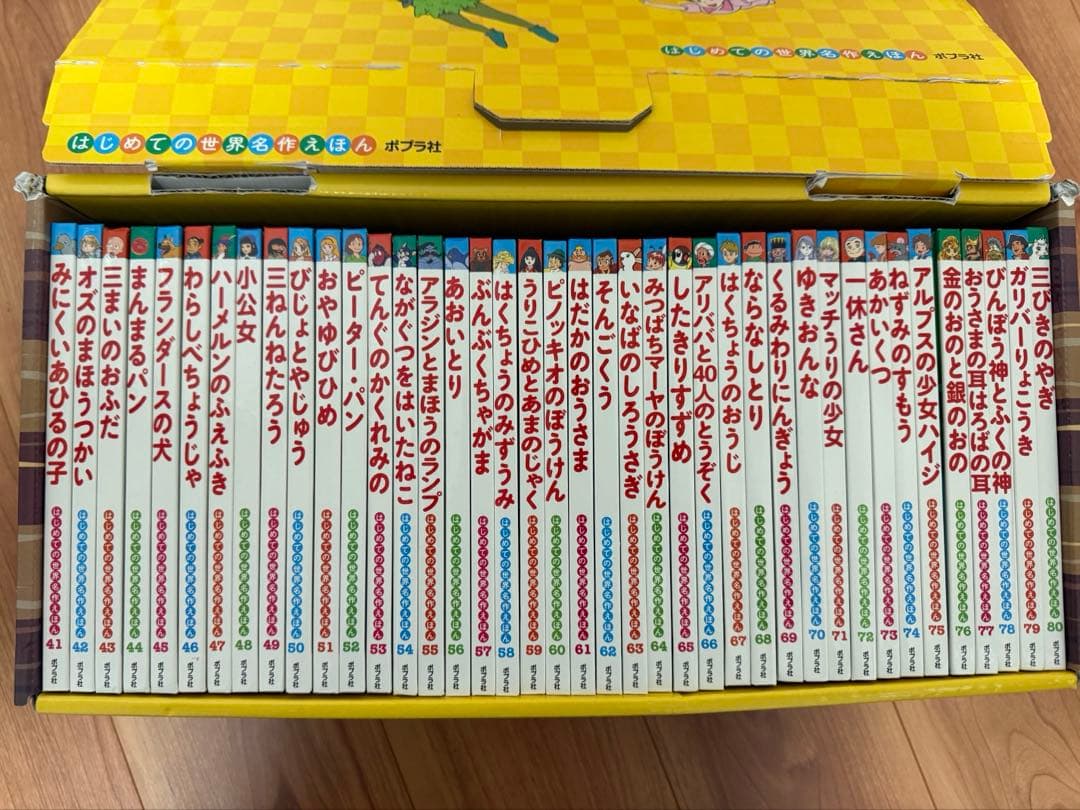 はじめての世界名作えほん ポプラ社
はじめての世界名作えほん ポプラ社
みにくいあひるの子 はじめての世界名作えほん 41 ポプラ社
オズのまほうつかい はじめての世界名作えほん 42 ポプラ社
三まいのおふだ はじめての世界名作えほん 43 ポプラ社
まんまるパン はじめての世界名作えほん 44 ポプラ社
フランダースの犬 はじめての世界名作えほん 45 ポプラ社
わらしべちょうじゃ はじめての世界名作えほん 46 ポプラ社
ハーメルンのふえふき はじめての世界名作えほん 47 ポプラ社
小公女 はじめての世界名作えほん 48 ポプラ社
三ねんねたろう はじめての世界名作えほん 49 ポプラ社
びじょとやじゅう はじめての世界名作えほん 50 ポプラ社
おやゆびひめ はじめての世界名作えほん 51 ポプラ社
ピーター・パン はじめての世界名作えほん 52 ポプラ社
てんぐのかくれみの はじめての世界名作えほん 53 ポプラ社
ながぐつをはいたねこ はじめての世界名作えほん 54 ポプラ社
アラジンとまほうのランプ はじめての世界名作えほん 55 ポプラ社
あおいとり はじめての世界名作えほん 56 ポプラ社
ぶんぶくちゃがま はじめての世界名作えほん 57 ポプラ社
はくちょうのみずうみ はじめての世界名作えほん 58 ポプラ社
うりこひめとあまのじゃく はじめての世界名作えほん 59 ポプラ社
ピノッキオのぼうけん はじめての世界名作えほん 60 ポプラ社
はだかのおうさま はじめての世界名作えほん 61 ポプラ社
そんごくう はじめての世界名作えほん 62 ポプラ社
いなばのしろうさぎ はじめての世界名作えほん 63 ポプラ社
みつばちマーヤのぼうけん はじめての世界名作えほん 64 ポプラ社
したきりすずめ はじめての世界名作えほん 65 ポプラ社
アリババと40人のとうぞく はじめての世界名作えほん 66 ポプラ社
はくちょうのおうじ はじめての世界名作えほん 67 ポプラ社
ならなしとり はじめての世界名作えほん 68 ポプラ社
くるみわりにんぎょう はじめての世界名作えほん 69 ポプラ社
ゆきおんな はじめての世界名作えほん 70 ポプラ社
マッチうりの少女 はじめての世界名作えほん 71 ポプラ社
一休さん はじめての世界名作えほん 72 ポプラ社
あかいくつ はじめての世界名作えほん 73 ポプラ社
ねずみのすもう はじめての世界名作えほん 74 ポプラ社
アルプスの少女ハイジ はじめての世界名作えほん 75 ポプラ社
金のおのと銀のおの はじめての世界名作えほん 76 ポプラ社
おうさまの耳はろばの耳 はじめての世界名作えほん 77 ポプラ社
びんぼう神とふくの神 はじめての世界名作えほん 78 ポプラ社
ガリバーりょこうき はじめての世界名作えほん 79 ポプラ社
三びきのやぎ はじめての世界名作えほん 80 ポプラ社